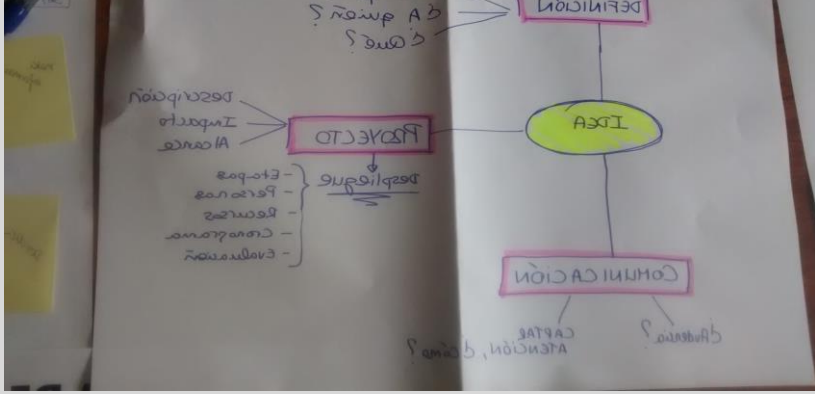 DEFINICIÓN
¿A quién?
¿Qué?
IDEA
PROYECTO
Descripción
Impacto
Alcance
Despliegue
- Etapas
- Personas
- Recursos
- Cronograma
- Evaluación
COMUNICACIÓN
¿Audiencia?
CAPTAR
ATENCIÓN, ¿cómo?